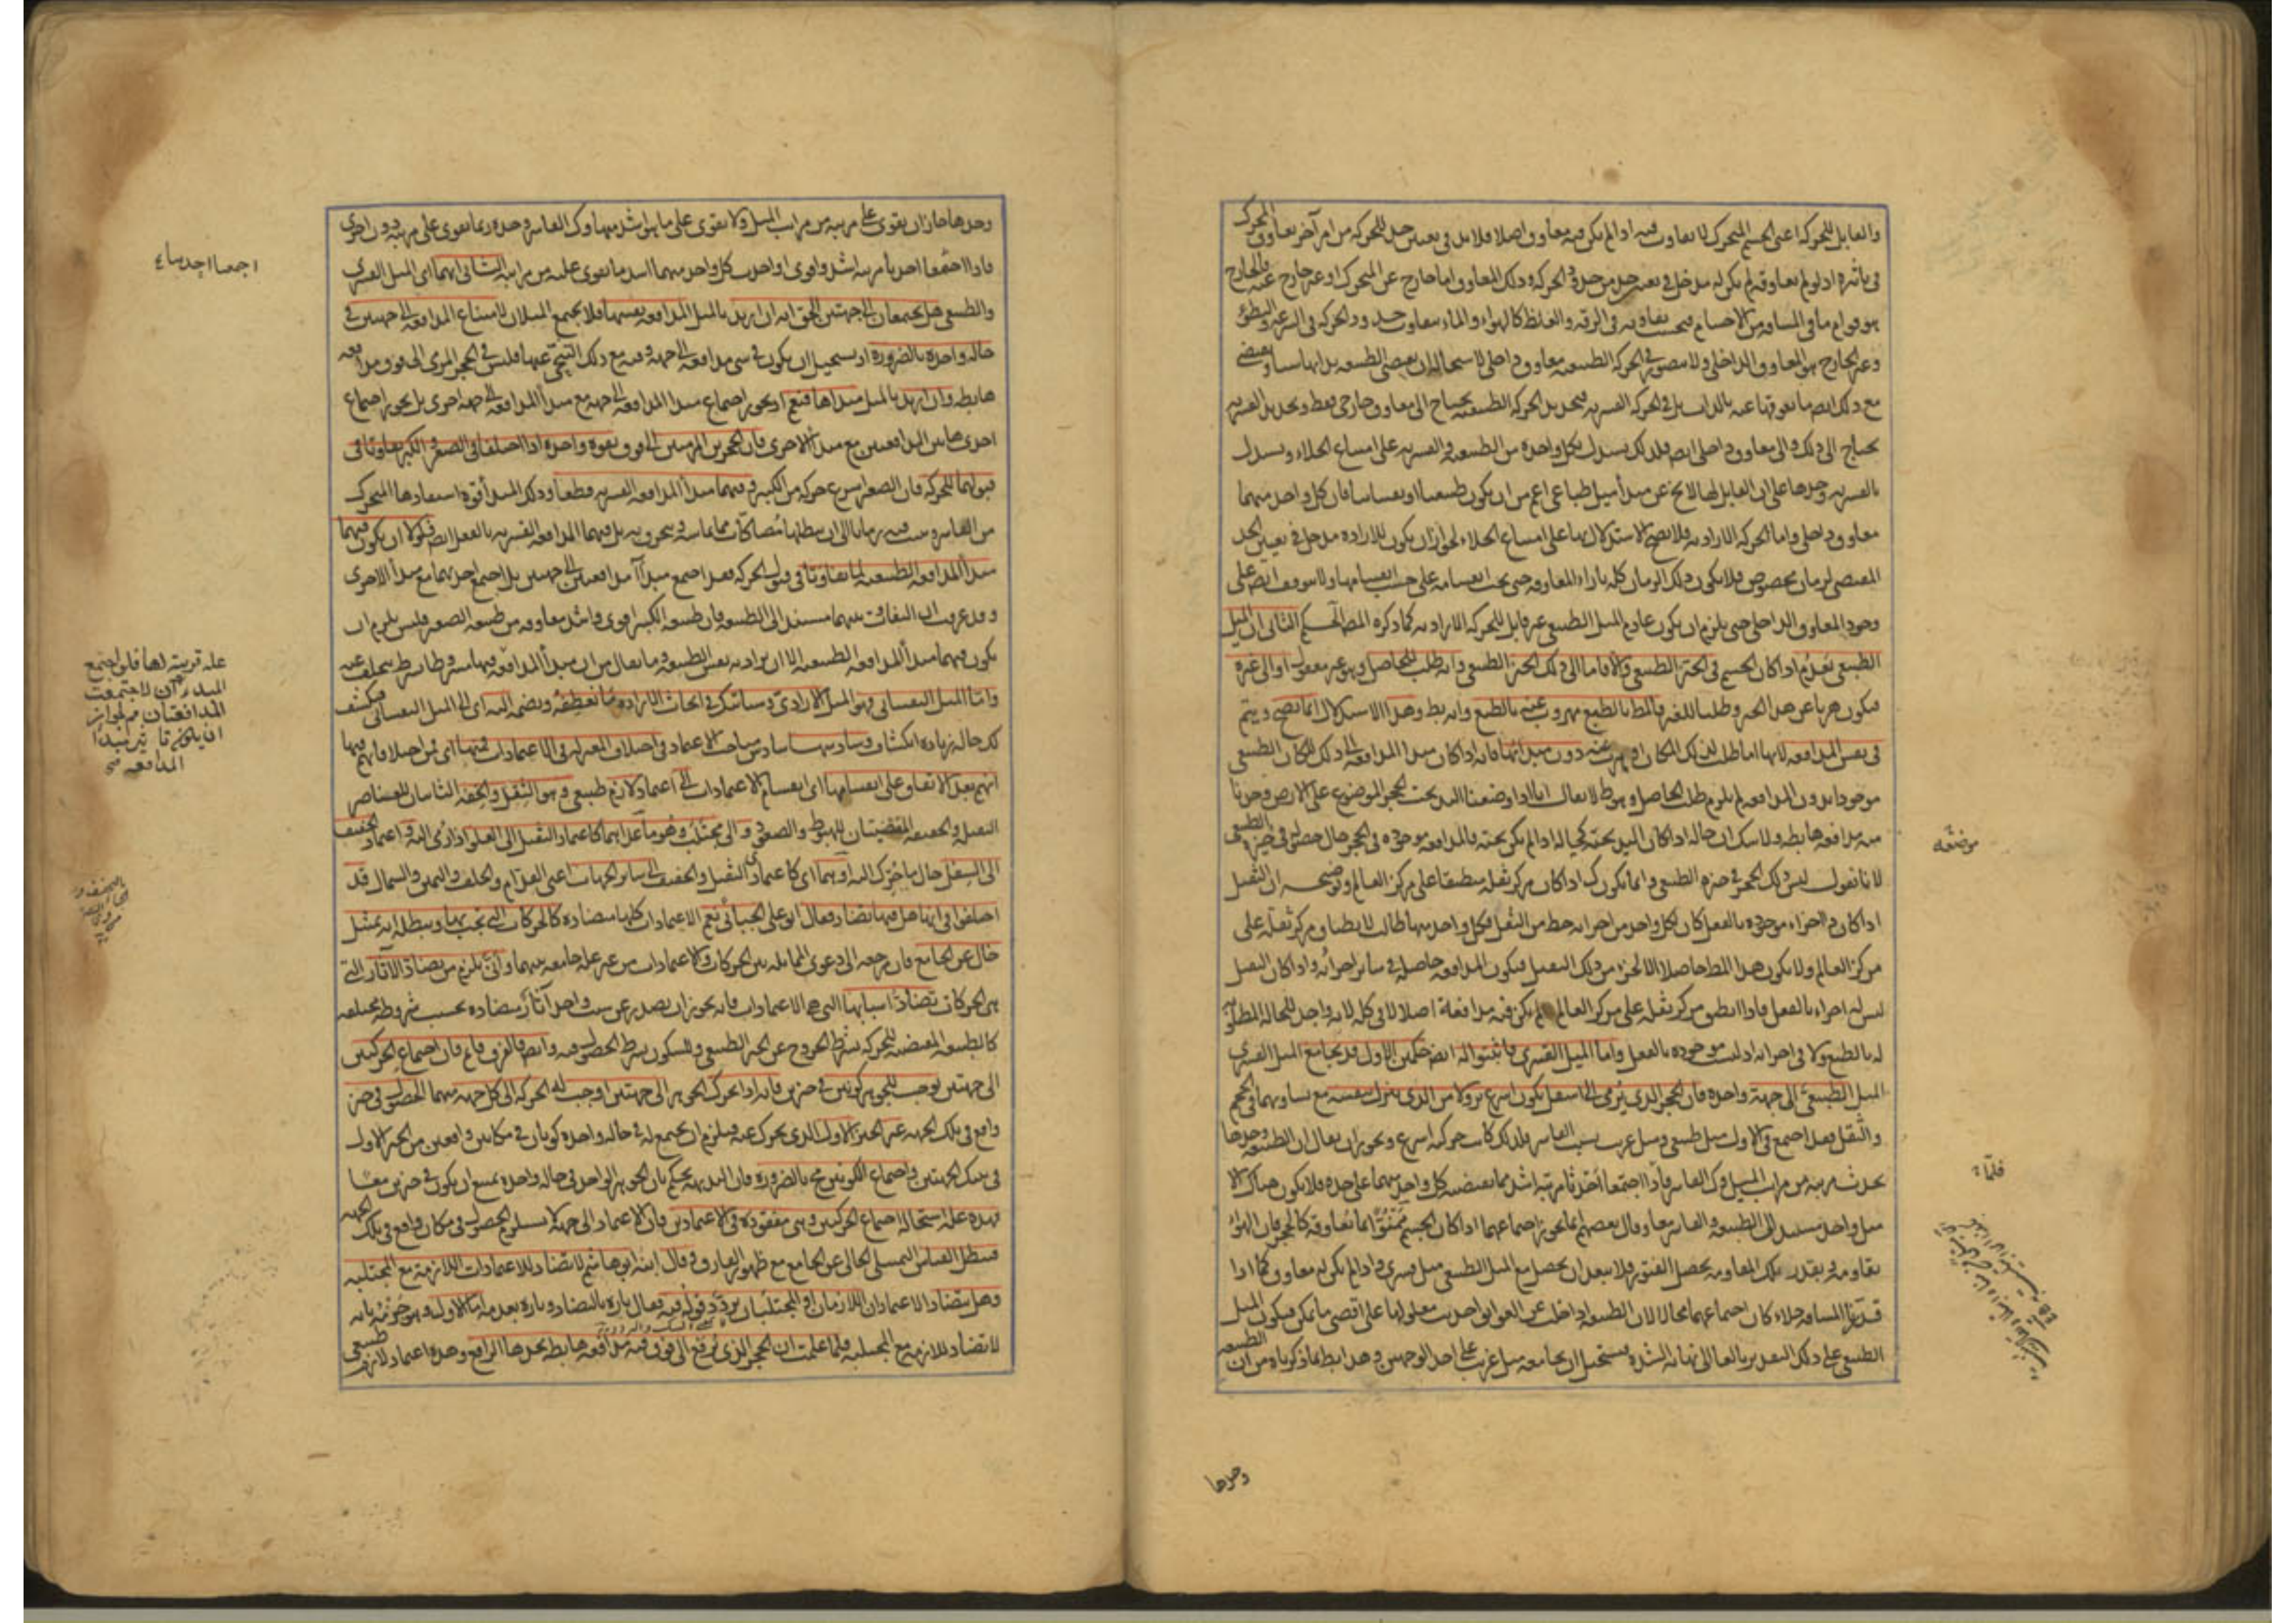 والقابل للحركة اعنى الجسم المتحرك لا تفاوت فيه اذا لم يكن فيه معاوق اصلا فلابد فى تعيين حد للحركة من امر آخر يعاوق المحرك
فى تاثيره اذ لو لم يعاوقه لم يكن له مدخل فى تعيين حد من حدود الحركة وذلك المعاوق اما خارج عن المتحرك او غير خارج عنه والخارج
هو قوام ما فى المسافة من الاجسام فبحسب تفاوته فى الرقة والغلظ كالهواء والماء يتفاوت حدود الحركة فى السرعة والبطؤ
وغير الخارج هو المعاوق الداخلى ولا يتصور فى الحركة الطبيعية معاوق داخلى لاستحالة ان يقتضى الطبيعة بذاتها شيئا ويقتضى
مع ذلك ايضا ما يعوقها عنه بالذات بل فى الحركة القسرية فتحديد الحركة الطبيعية يحتاج الى معاوق خارجى فقط وتحديد القسرية
يحتاج الى ذلك والى معاوق داخلى ايضا فلذلك يستدل بكل واحدة من الطبيعية والقسرية على امتناع الخلاء ويستدل
بالقسرية وحدها على ان القابل لها لا يخ عن مبدأ ميل طباعى اعم من ان يكون طبيعيا او نفسانيا فان كل واحد منهما
معاوق داخلى واما الحركة الارادية فلا يصح الاستدلال بها على امتناع الخلاء لجواز ان يكون للارادة مدخل فى تعيين الحد
المقتضى لزمان مخصوص فلا يكون ذلك الزمان كله بازاء المعاوقة حتى يجب انقسامه على حسب انقسامها ولا يتوقف ايضا على
وجود المعاوق الداخلى حتى يلزم ان يكون عادم الميل الطبيعى غير قابل للحركة الارادية كما ذكره المص الحكم الثانى ان الميل
الطبيعى يعدم اذا كان الجسم فى الحيز الطبيعى والا فاما الى ذلك الحيز الطبيعى وانه طلب للحاصل وهو غير معقول او الى غيره
فيكون هربا عن هذا الحيز وطلبا لغيره فالمط بالطبع مهروب عنه بالطبع وانه بط وهذا الاستدلال انما يصح ويتم
فى نفس المدافعة لانها اما طلب لذلك المكان او هرب عنه دون مبدائها فانه اذا كان مبدا المدافعة الى ذلك المكان الطبيعى
موجودا بدون المدافعة لم يلزم طلب الحاصل وهو ط لا يقال انا اذا وضعنا اليد تحت الحجر الموضوع على الارض وجدنا
منه مدافعة هابطة ولا شك ان حاله اذا كان اليد تحته كحاله اذا لم يكن تحته فالمدافعة موجودة فى الحجر حال حصوله فى حيزه الطبيعى
لانا نقول ليس ذلك الحجر فى حيزه الطبيعى وانما يكون ك اذا كان مركز ثقله منطبقا على مركز العالم وتوضيحه ان الثقيل
اذا كان ذا اجزاء موجودة بالفعل كان لكل واحد من اجزائه حظ من الثقل فكل واحد منها طالب لانطباق مركز ثقله على
مركز العالم ولا يكون هذا المط حاصلا الا لجزء من ذلك الثقيل فيكون المدافعة حاصلة فى سائر اجزائه واذا كان الثقيل
ليس له اجزاء بالفعل فاذا انطبق مركز ثقله على مركز العالم لم يكن فيه مدافعة اصلا لا فى كله لانه واجد للحالة المطلوبة
له بالطبع ولا فى اجزائه اذ ليست موجودة بالفعل واما الميل القسرى فاثبتوا له ايضا حكمين الاول قد يجامع الميل القسرى
الميل الطبيعى الى جهة واحدة فان الحجر الذى يرمى الى اسفل يكون اسرع نزولا من الذى ينزل بنفسه مع تساويهما فى الحجم
والثقل فقد اجتمع فى الاول ميل طبيعى وميل غريب بسبب القاسر فلذلك كانت حركته اسرع ويجوز ان يقال ان الطبيعة وحدها
يحدث مرتبة من مراتب الميل وك القاسر فاذا اجتمعا احدثا مرتبة اشد مما يقتضيه كل واحد منهما على حدة فلا يكون هناك الا
ميل واحد مستند الى الطبيعة والقاسر معا وقال بعضهم انما يجوز اجتماعهما اذا كان الجسم ممنوا بما يعاوقه كالحجر فان الهواء
يقاومه وبقدر تلك المقاومة يحصل الفتور فلا يبعد ان يحصل مع الميل الطبيعى ميل قسرى واذا لم يكن له معاوق كما اذا
قدرنا المسافة خلاء كان اجتماعهما محالا لان الطبيعة اذا خلت عن العوايق احدثت معلولها على اقصى ما يمكن فيكون الميل
الطبيعى على ذلك التقدير بالغا الى نهاية الشدة فيستحيل ان يجامعه ميل غريب على احد الوجهين وهذا ابط بما ذكرناه من ان الطبيعة
وحدها
موضعه
فلما
وحدها جاز ان يقوى على مرتبة من مراتب الميل ولا يقوى على ما هو اشد منها وك القاسر وحده ربما يقوى على مرتبة دون اخرى
فاذا اجتمعا احدثا مرتبة اشد واقوى او احدث كل واحد منهما اشد ما يقوى عليه من مراتبه الثانى انهما اى الميل القسرى
والطبيعى هل يجتمعان الى جهتين الحق انه ان اريد بالميل المدافعة نفسها فلا يجتمع الميلان لامتناع المدافعة الى جهتين فى
حالة واحدة بالضرورة اذ يستحيل ان يكون فى شى مدافعة الى جهة وفيه مع ذلك التنحى عنها فليس فى الحجر المرمى الى فوق مدافعة
هابطة وان اريد بالميل مبداها فنعم اذ يجوز اجتماع مبدا المدافعة الى جهة مع مبدأ المدافعة الى جهة اخرى بل يجوز اجتماع
احدى هاتين المدافعتين مع مبدأ الاخرى فان الحجرين المرميين الى فوق بقوة واحدة اذا اختلفا فى الصغر والكبر تفاوتا فى
قبولهما للحركة فان الصغير اسرع حركة من الكبير وفيهما مبدأ المدافعة القسرية قطعا وذلك المبدأ قوة استفادها المتحرك
من القاسر وثبتت فيه زمانا الى ان يبطلها مصاكات مما يماسه وينخرق به بل فيهما المدافعة القسرية بالفعل ايضا فلولا ان يكون فيهما
مبدأ المدافعة الطبيعية لما تفاوتا فى قبول الحركة فقد اجتمع مبدآ مدافعتين الى جهتين بل اجتمع احدهما مع مبدأ الاخرى
وقد عرفت ان التفاوت بينهما مستند الى الطبيعة فان طبيعة الكبير اقوى واشد معاوقة من طبيعة الصغير فليس يلزم ان
يكون فيهما مبدأ للمدافعة الطبيعية الا ان يراد به نفس الطبيعة وما يقال من ان مبدأ المدافعة فيها مشروطا بشرط يتخلف عنه
واما الميل النفسانى فهو الميل الارادى وسيأتيك فى ابحاث الارادة ما تعطفه ويضمه اليه اى الى الميل النفسانى فيكشف
لك حاله زيادة انكشاف وسادسها سادس مباحث الاعتماد فى اختلاف المعتزلة فى الاعتمادات فمنها اى فمن اختلافاتهم فيها
انهم بعد الاتفاق على انقسامها اى انقسام الاعتمادات الى اعتماد لازم طبيعى وهو الثقل والخفة الثابتان للعناصر
الثقيلة والخفيفة المقتضيتان للهبوط والصعود والى مجتلب وهو ما عداهما كاعتماد الثقيل الى العلو اذا رمى اليه واعتماد الخفيف
الى السفل حال ما حرك اليه او هما اى كاعتمادى الثقيل والخفيف الى سائر الجهات اعنى القدام والخلف واليمين والشمال قد
اختلفوا فى انها هل فيها تضاد فقال ابو على الجبائى نعم الاعتمادات كلها متضادة كالحركات التى تجب بها ويبطله انه تمثيل
خال عن الجامع فان مرجعه الى دعوى المماثلة بين الحركات والاعتمادات من غير علة جامعة بينهما وانى يلزم من تضاد الآثار التى
هى الحركات تضاد اسبابها التى هى الاعتمادات فانه يجوز ان يصدر عن سبب واحد آثار متضادة بحسب شروط مختلفة
كالطبيعة المقتضية للحركة بشرط الخروج عن الحيز الطبيعى وللسكون بشرط الحصول فيه وايضا فالفرق قائم فان اجتماع الحركتين
الى جهتين يوجب للجوهر كونين فى حيزين فانه اذا تحرك الجوهر الى جهتين اوجب له الحركة الى كل جهة منهما الحصول فى حيز
واقع فى تلك الجهة غير الحيز الاول الذى يتحرك عنه فيلزم ان يجتمع له فى حالة واحدة كونان فى مكانين واقعين من الحيز الاول
فى تينك الجهتين واجتماع الكونين مح بالضرورة فان البديهة يحكم بان الجوهر الواحد فى حالة واحدة يمتنع ان يكون فى حيزين معا
فهذه علة استحالة اجتماع الحركتين وهى مفقودة فى الاعتمادين فان الاعتماد الى جهة لا يستلزم الحصول فى مكان واقع فى تلك الجهة
فبطل القياس التمثيلى الخالى عن الجامع مع ظهور الفارق وقال ابنه ابو هاشم لا تضاد للاعتمادات اللازمة مع المجتلبة
وهل يتضاد الاعتمادان اللازمان او المجتلبان تردد قوله فيه فقال تارة بالتضاد وتارة بعدمه اما الاول وهو جزمه بانه
لا تضاد للازمة مع المجتلبة فلما علمت ان الحجر الذى يرفع الى فوق فيه مدافعة هابطة يجدها الرافع وهذه اعتماد لازم طبيعى
علة قريبة لها فلو اجتمع
المبدءان لاجتمعت
المدافعتان
المدافعة